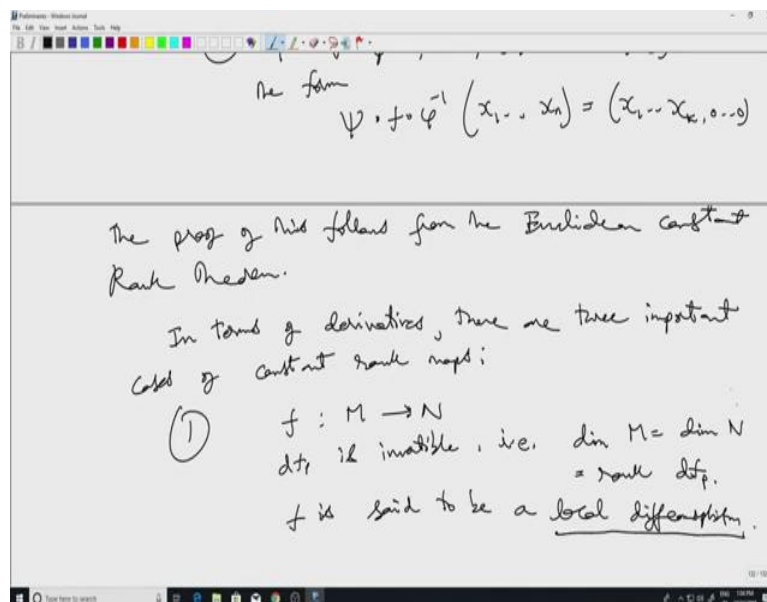 Preliminaries - Windows Journal
File Edit View Insert Actions Tools Help
B I
the form
ψ ∘ f ∘ φ⁻¹ (x₁ .. xₙ) = (x₁ .. xₖ, 0 .. 0)
The proof of this follows from the Euclidean constant
Rank Theorem.
In terms of derivatives, there are three important
cases of constant rank maps:
① f : M → N
dfₚ is invertible, i.e. dim M = dim N
= rank dfₚ.
f is said to be a local diffeomorphism.
Type here to search
ENG